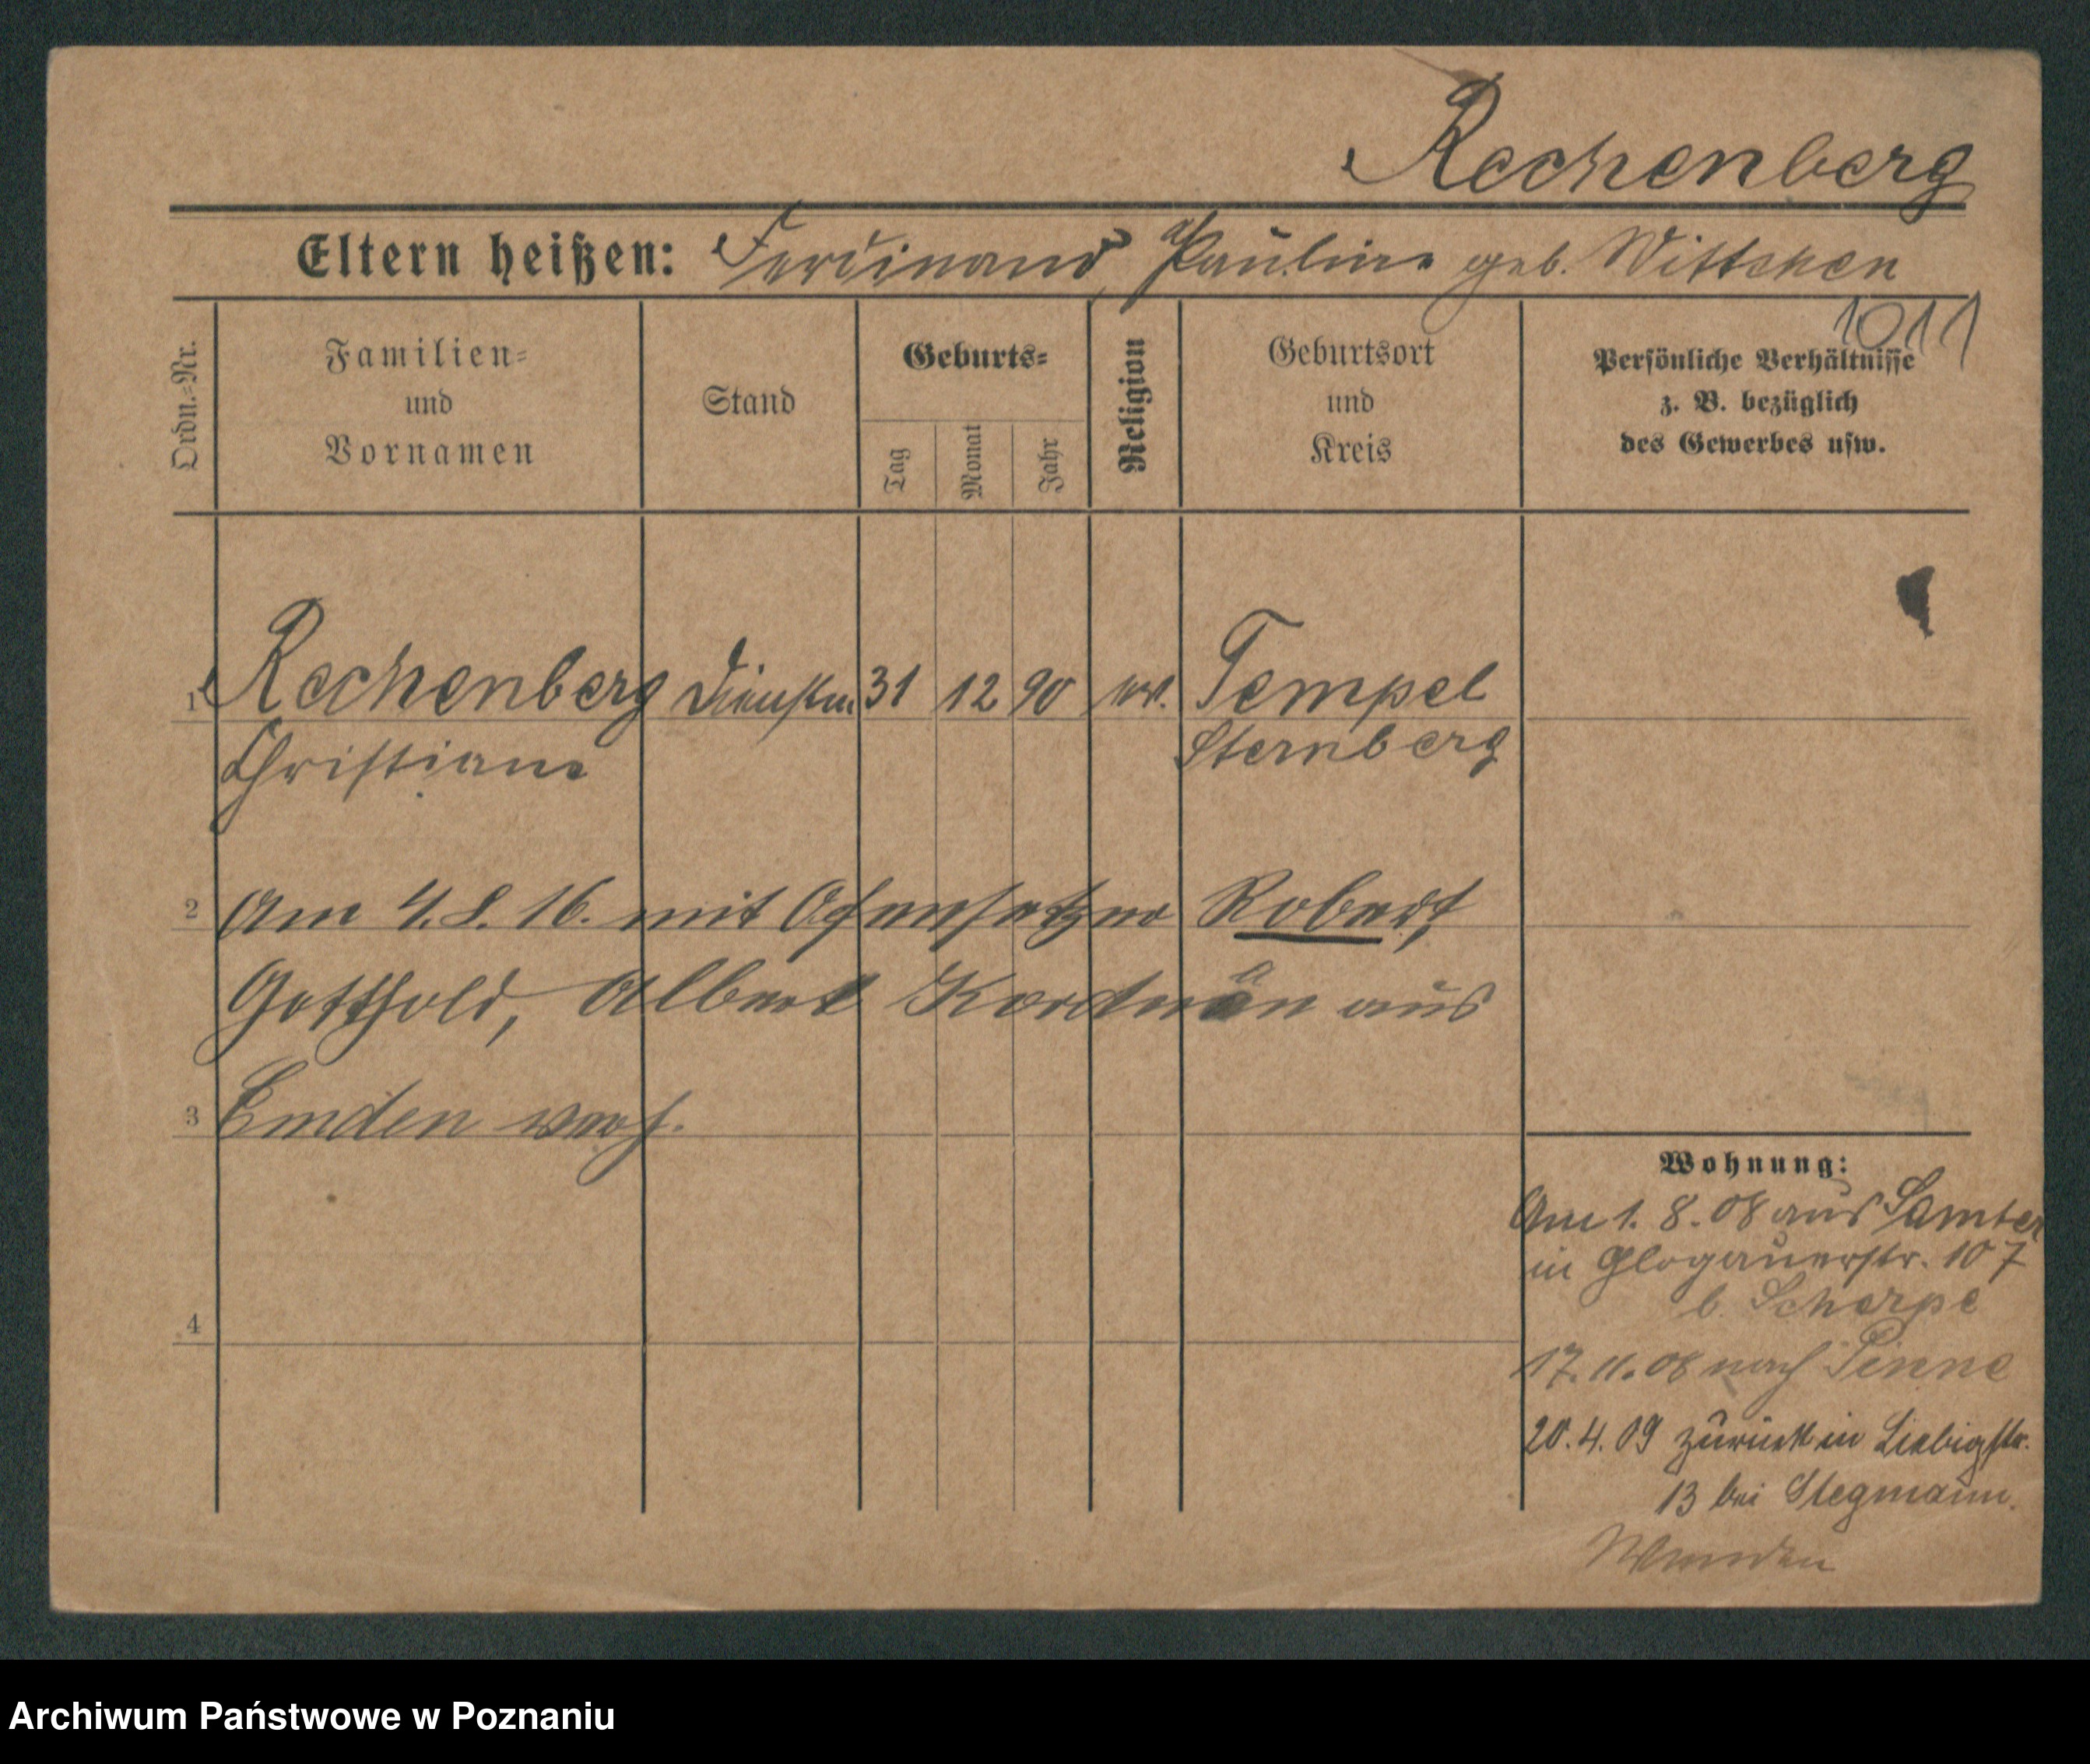 Rechenberg
Eltern heißen: Ferdinand, Pauline geb. Wittchen
1011
Ordn.=Nr.
Familien=
und
Vornamen
Stand
Geburts=
Tag
Monat
Jahr
Religion
Geburtsort
und
Kreis
Persönliche Verhältnisse
z. B. bezüglich
des Gewerbes usw.
1 Rechenberg Dienstm. 31 12 90 ev. Tempel
Christiane Sternberg
2 Am 4. 8. 16. mit Ofensetzer Robert,
Gotthold, Albert aus
3 Emden verh.
4
Wohnung:
Am 1. 8. 08 aus Samter
in Glogauerstr. 107
b. Scherpe
17. 11. 08 nach Pinne
20. 4. 09 zurück in Liebigstr.
13 bei Stegmann.
Archiwum Państwowe w Poznaniu